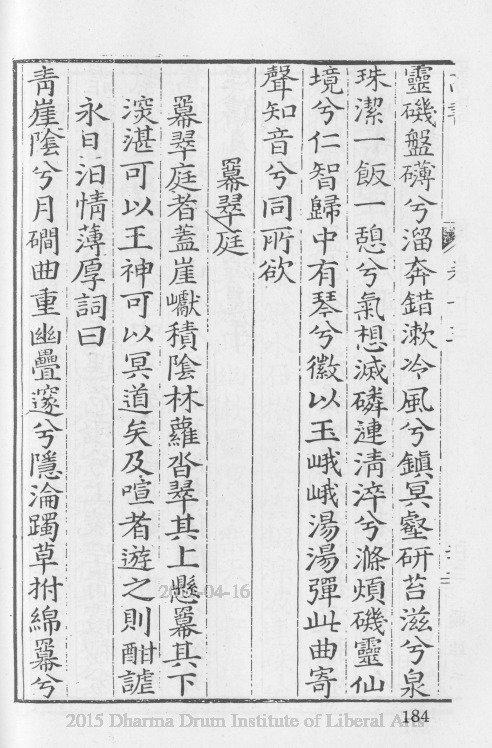 靈磯盤礴兮溜奔錯漱冷風兮鎮冥壑研苔滋兮泉
珠潔一飯一憩兮氣想滅磷漣清淬兮滌煩磯靈仙
境兮仁智歸中有琴兮徽以玉峨峨湯湯彈此曲寄
聲知音兮同所欲
羃翠庭
羃翠庭者蓋崖巘積陰林蘿沓翠其上懸羃其下
湥湛可以王神可以冥道矣及喧者遊之則酣謔
永日汩情薄厚詞曰
青崖陰兮月磵曲重幽疊邃兮隱淪躅草拊綿羃兮
2015-04-16
2015 Dharma Drum Institute of Liberal Arts
184